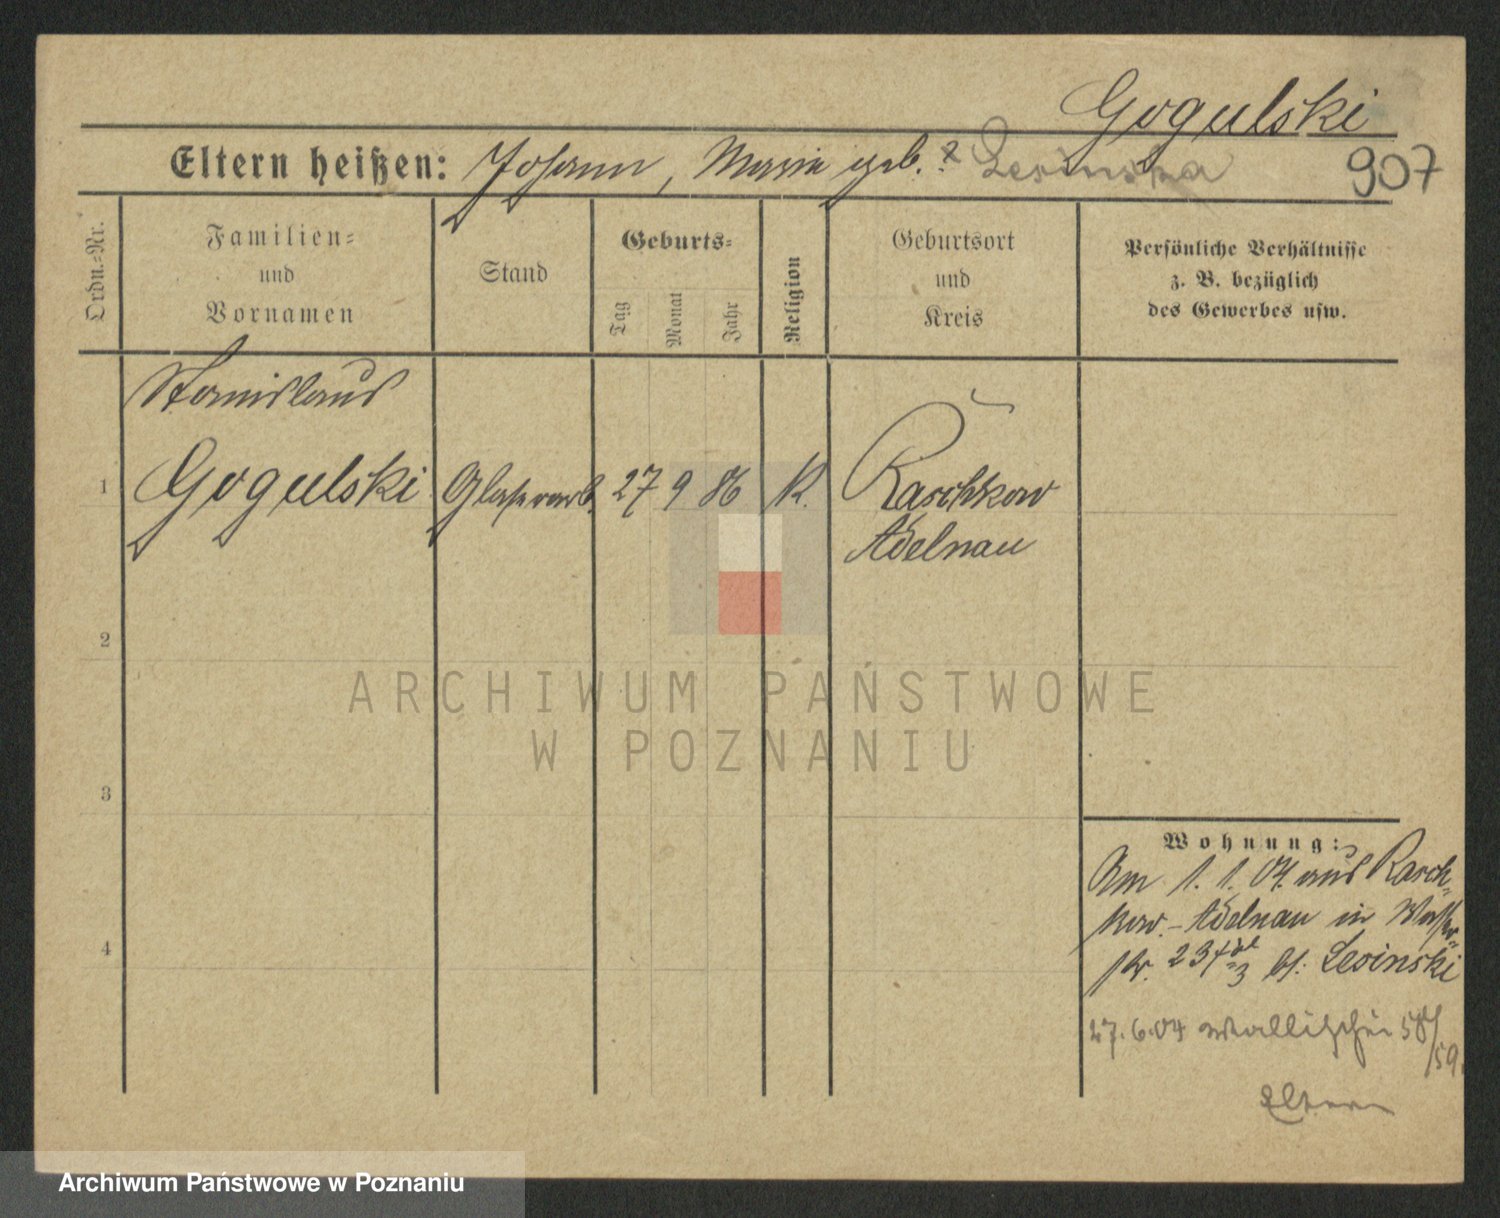 Gogulski
Eltern heißen: Johann, Maria geb. ? Lesinska 907
Ordn.-Nr.
Familien-
und
Vornamen
Stand
Geburts-
Tag
Monat
Jahr
Religion
Geburtsort
und
Kreis
Persönliche Verhältnisse
z. B. bezüglich
des Gewerbes usw.
Stanislaus
1 Gogulski Glaserarb. 27 9 86 K. Raschkow
Adelnau
2
ARCHIWUM PAŃSTWOWE
W POZNANIU
3
Wohnung:
Am 1. 1. 04. aus Rasch-
kow.-Adelnau in Wasser-
str. 23 b/: Lesinski
4
27.6.04 Wallischei 58/
59.
Eltern
Archiwum Państwowe w Poznaniu